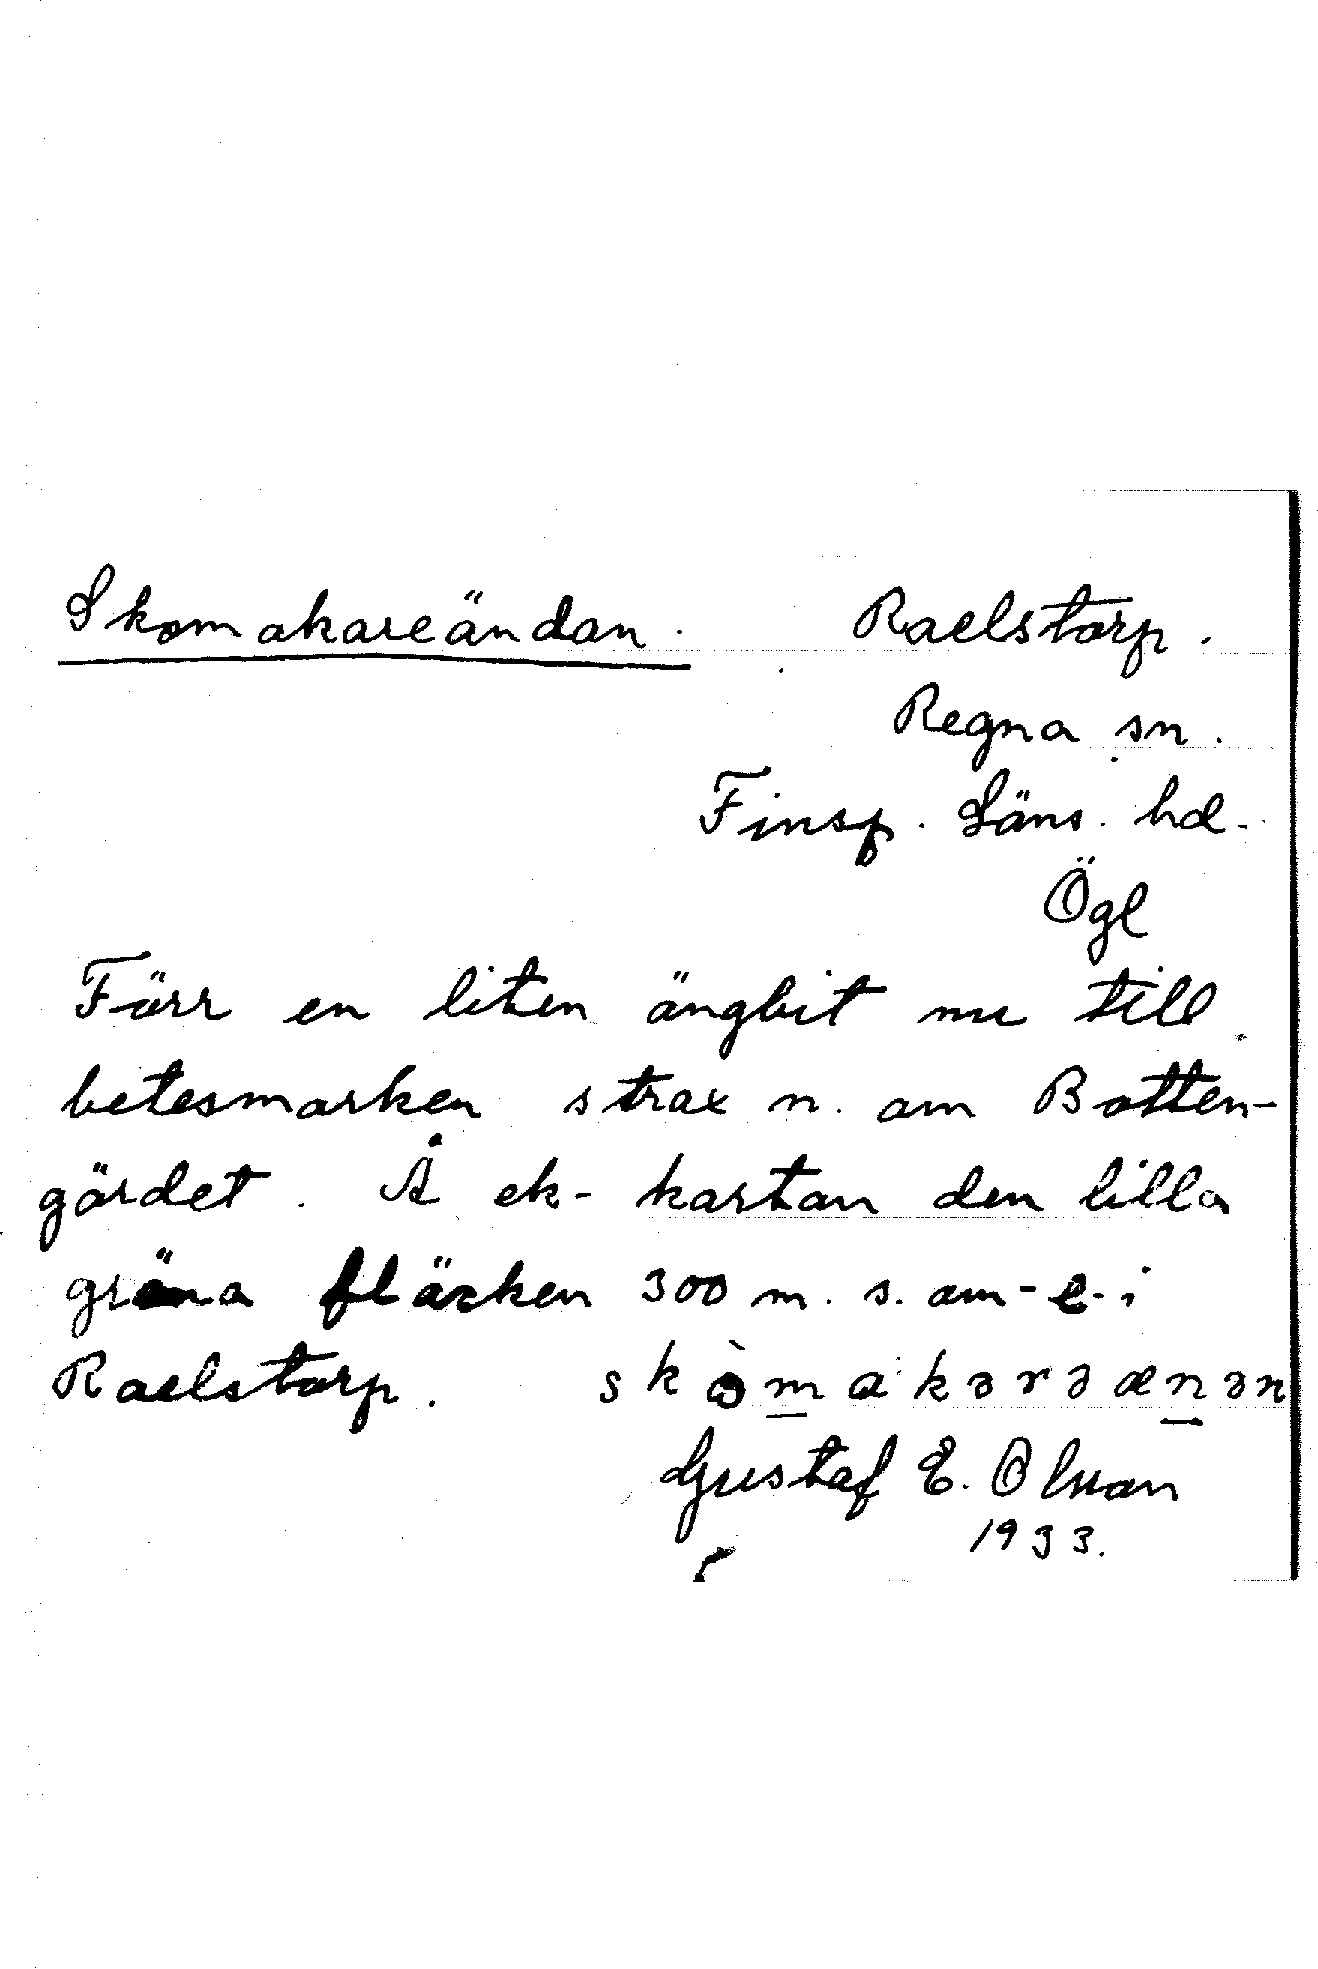 Skomakareändan. Raelstorp.
Regna sn.
Finsp. Läns. hd.
Ögl
Förr en liten ängbit nu till
betesmarken strax n. om Botten-
gärdet. Å ek-kartan den lilla
gröna fläcken 300 m. s. om - e - i
Raelstorp. skòmakərəænən
Gustaf E. Olsson
1933.